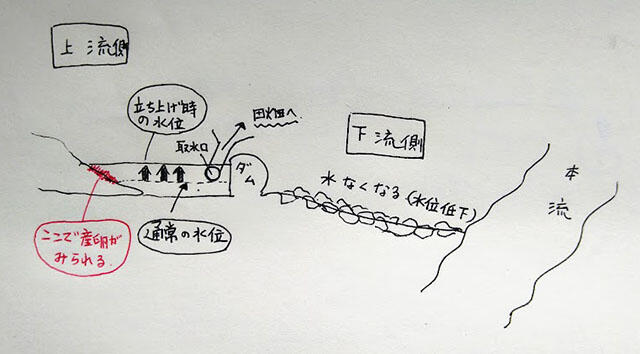 上流側
立ち上げ時
の水位
田畑へ
取水口
ダム
下流側
水なくなる(水位低下)
本流
通常の水位
ここで産卵が
みられる